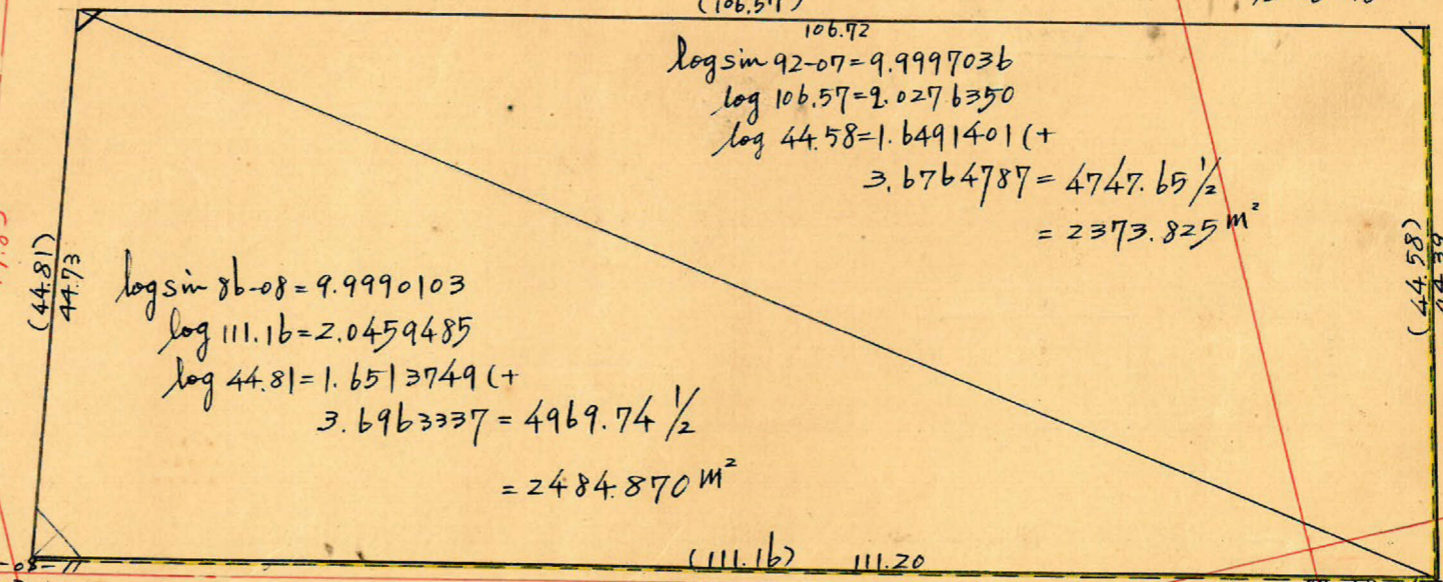 (106.57)
106.72
log sin 92-07=9.9997036
log 106.57=2.0276350
log 44.58=1.6491401(+
3.6764787=4747.65 1/2
=2373.825 m²
(44.81)
44.73
(44.58)
44.39
log sin 86-08=9.9990103
log 111.16=2.0459485
log 44.81=1.6513749(+
3.6963337=4969.74 1/2
=2484.870 m²
(111.16) 111.20